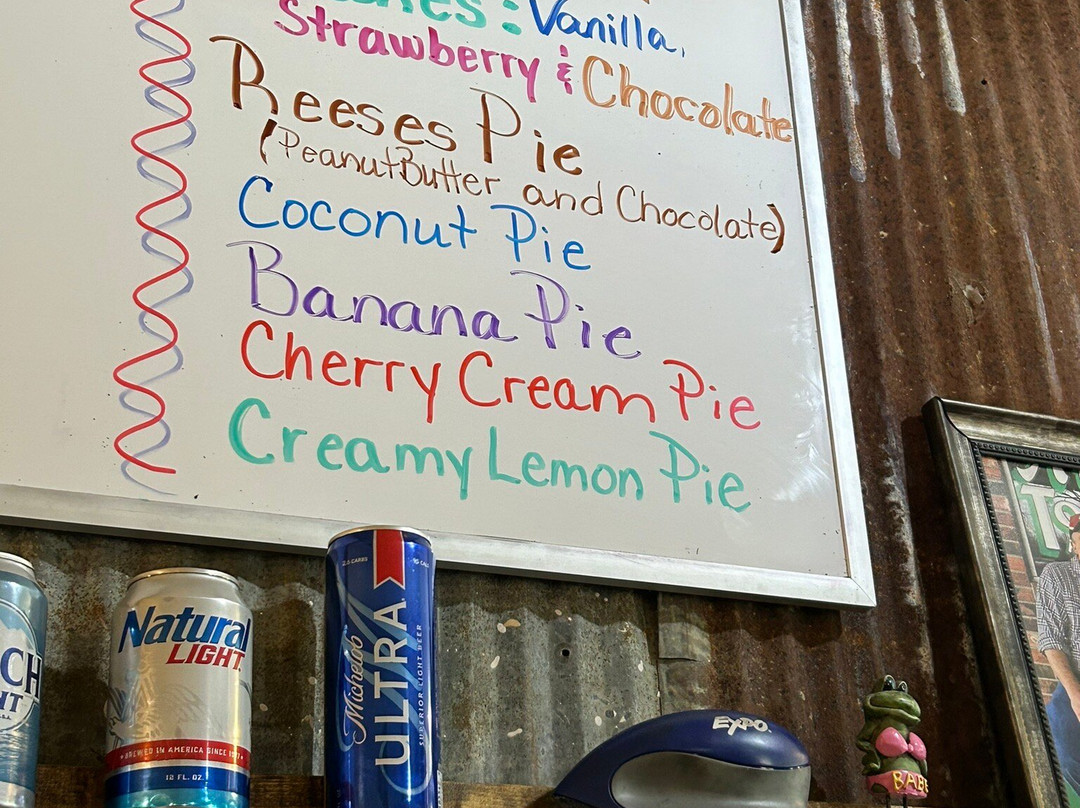 Vanilla,
Strawberry & Chocolate
Reeses Pie
(Peanut Butter and Chocolate)
Coconut Pie
Banana Pie
Cherry Cream Pie
Creamy Lemon Pie
Natural
LIGHT
BREWED IN AMERICA SINCE 1977
12 FL. OZ.
2.6 CARBS
95 CAL
Michelob
ULTRA
SUPERIOR LIGHT BEER
EXPO
BABE